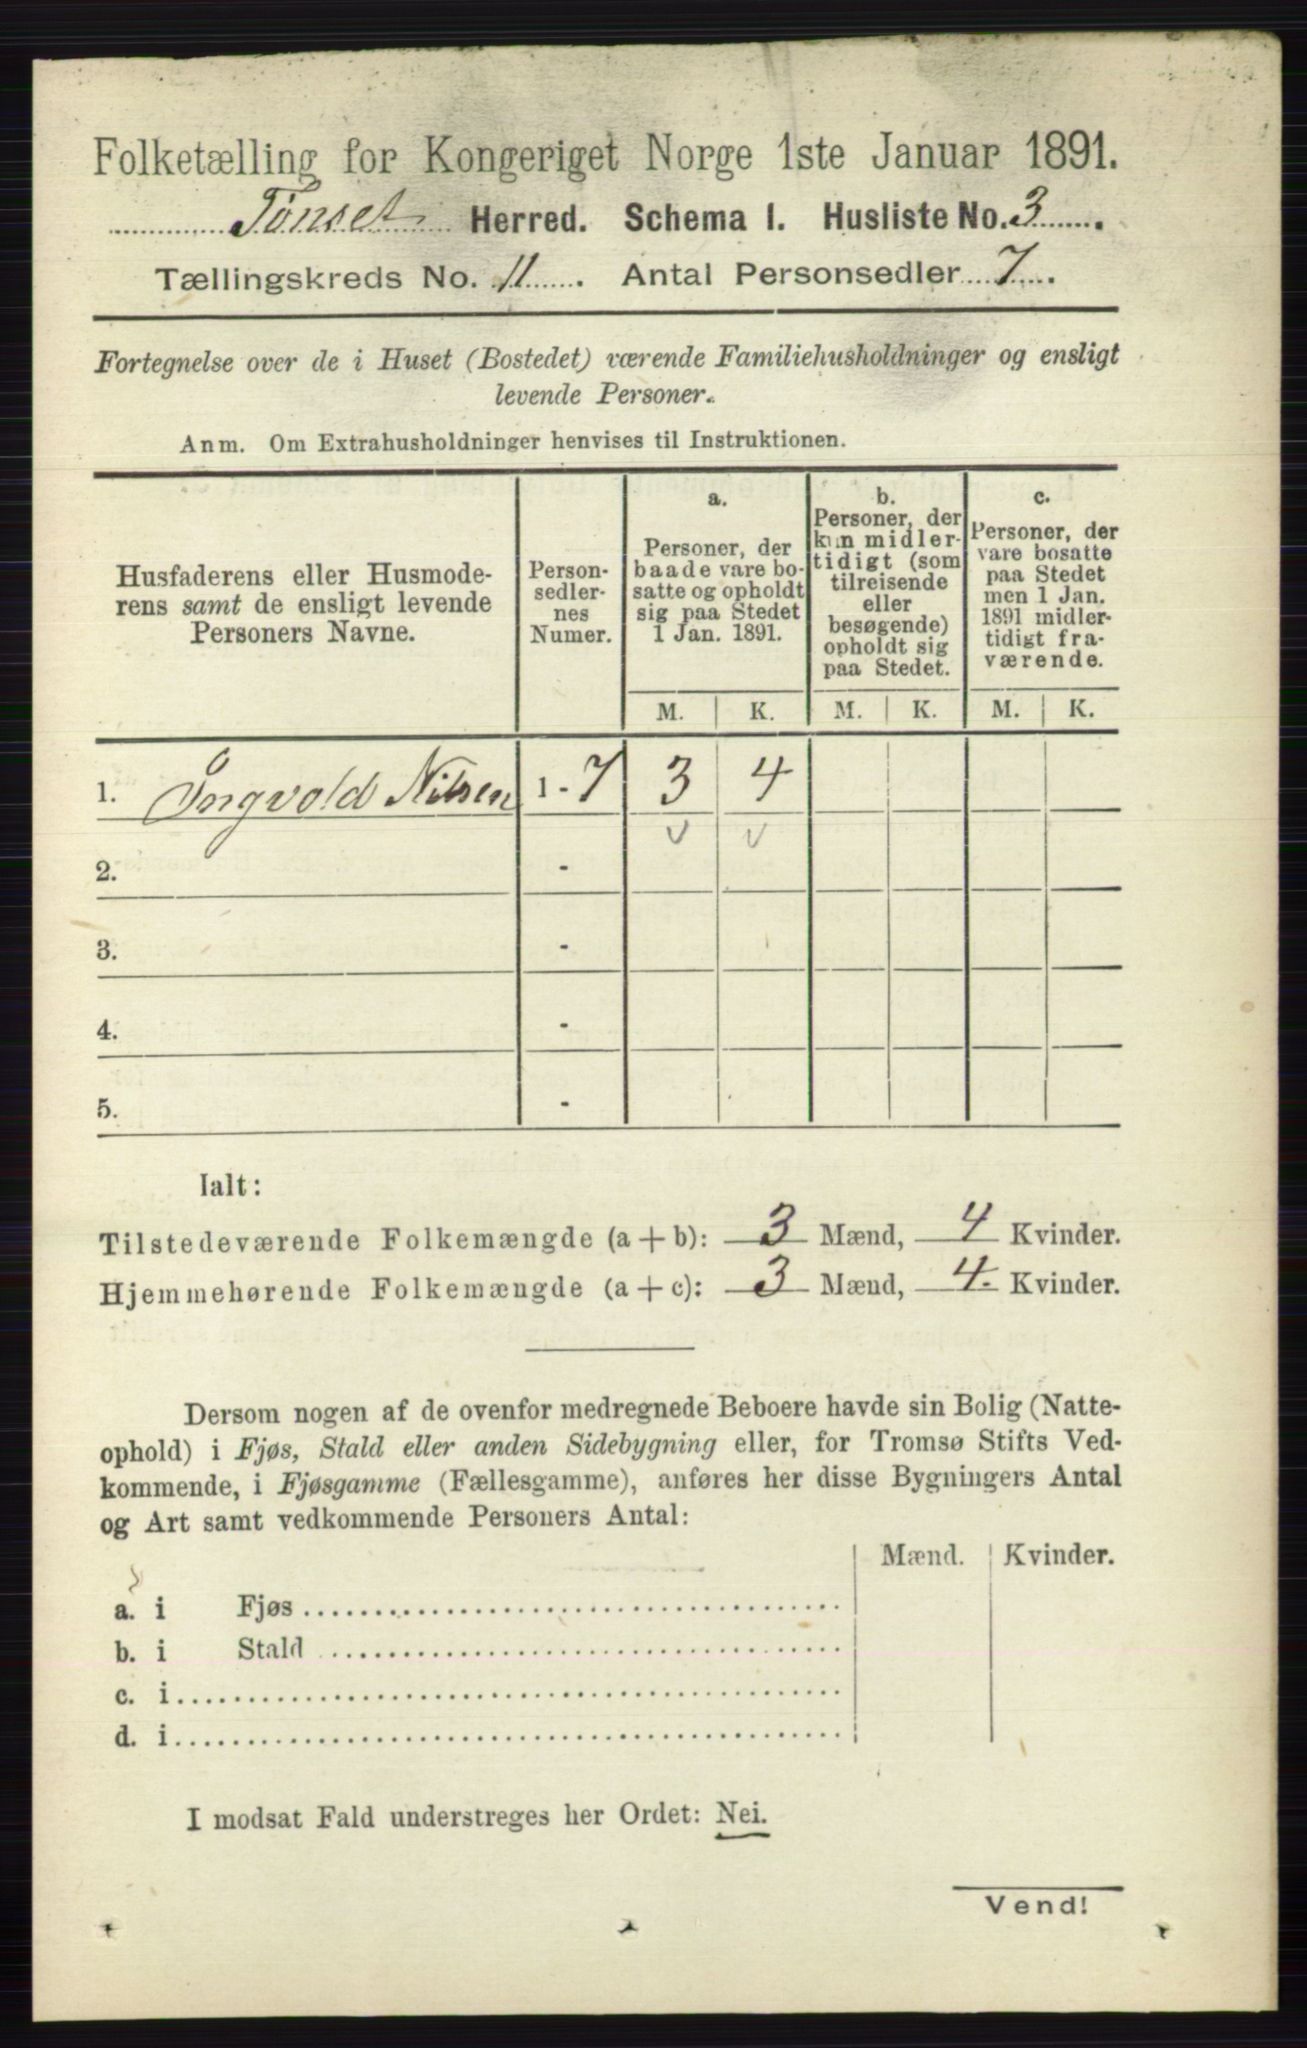 Folketælling for Kongeriget Norge 1ste Januar 1891.
Tønset Herred. Schema 1. Husliste No. 3
Tællingskreds No. 11. Antal Personsedler 7.
Fortegnelse over de i Huset (Bostedet) værende Familiehusholdninger og ensligt
levende Personer.
Anm. Om Extrahusholdninger henvises til Instruktionen.
Husfaderens eller Husmode-
rens samt de ensligt levende
Personers Navne.
Person-
sedler-
nes
Numer.
a.
Personer, der
baade vare bo-
satte og opholdt
sig paa Stedet
1 Jan. 1891.
b.
Personer, der
kun midler-
tidigt (som
tilreisende
eller
besøgende)
opholdt sig
paa Stedet.
c.
Personer, der
vare bosatte
paa Stedet
men 1 Jan.
1891 midler-
tidigt fra-
værende.
M. K. M. K. M. K.
1. Ingvold Nilsen 1 - 7 3 4
v v
2. -
3. -
4. -
5. -
Ialt:
Tilstedeværende Folkemængde (a + b): 3 Mænd, 4 Kvinder.
Hjemmehørende Folkemængde (a + c): 3 Mænd, 4 Kvinder.
Dersom nogen af de ovenfor medregnede Beboere havde sin Bolig (Natte-
ophold) i Fjøs, Stald eller anden Sidebygning eller, for Tromsø Stifts Ved-
kommende, i Fjøsgamme (Fællesgamme), anføres her disse Bygningers Antal
og Art samt vedkommende Personers Antal:
Mænd. Kvinder.
a. i Fjøs
b. i Stald
c. i
d. i
I modsat Fald understreges her Ordet: Nei.
Vend!